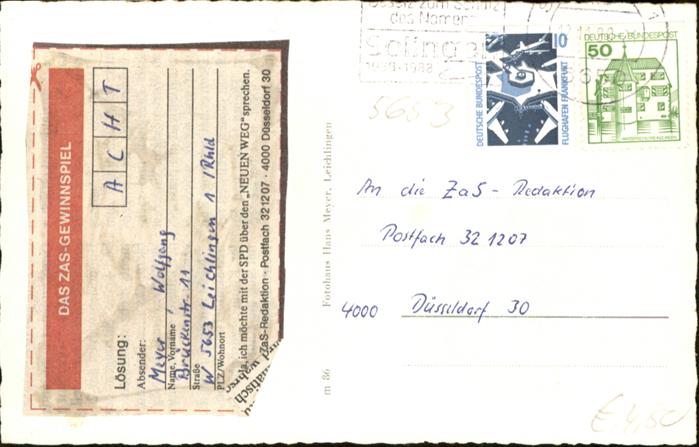 DAS ZAS-GEWINNSPIEL
A C H T
Lösung:
Absender:
Meyer, Wolfgang
Name, Vorname
Brückenstr. 11
Straße
W 5653 Leichlingen 1 /Rhld
PLZ/Wohnort
ich möchte mit der SPD über den „NEUEN WEG“ sprechen.
ZaS-Redaktion · Postfach 321207 · 4000 Düsseldorf 30
des Namens
Solingen
1988
DEUTSCHE BUNDESPOST
10
FLUGHAFEN FRANKFURT
DEUTSCHE BUNDESPOST
50
5653
Fotohaus Hans Meyer, Leichlingen
m 86
An die ZaS-Redaktion
Postfach 32 1207
4000 Düsseldorf 30